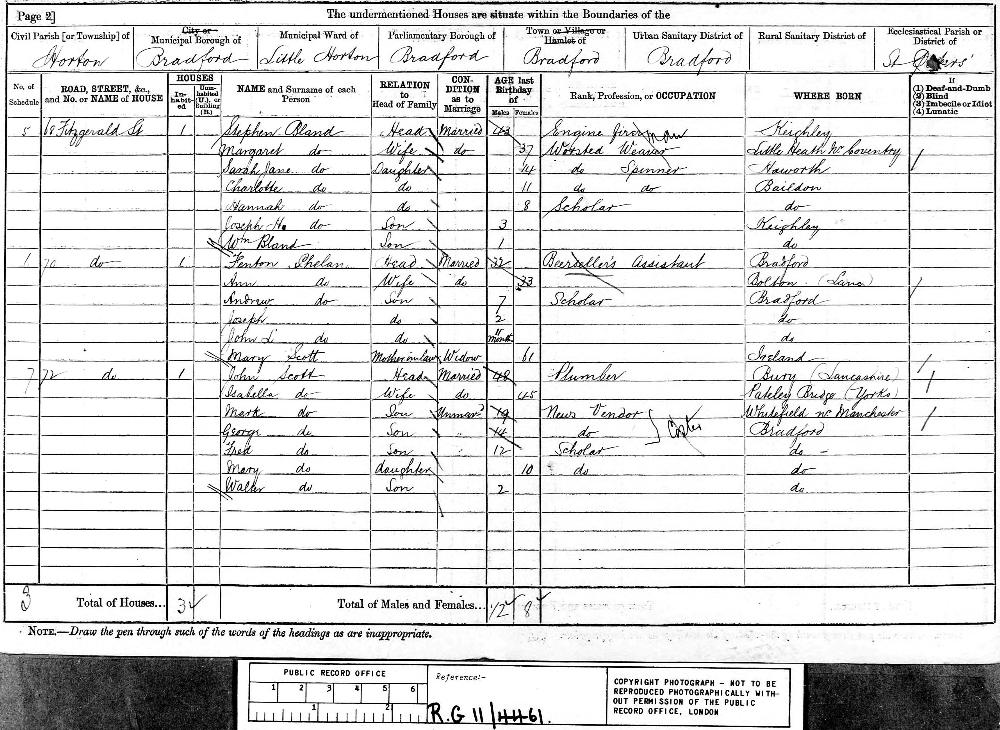 Page 2]
The undermentioned Houses are situate within the Boundaries of the
Civil Parish [or Township] of
City or Municipal Borough of
Municipal Ward of
Parliamentary Borough of
Town or Village or Hamlet of
Urban Sanitary District of
Rural Sanitary District of
Ecclesiastical Parish or District of
Horton Bradford Little Horton Bradford Bradford Bradford St
No. of Schedule
ROAD, STREET, &c., and No. or NAME of HOUSE
HOUSES
Inhabited
Uninhabited (U.), or Building (B.)
NAME and Surname of each Person
RELATION to Head of Family
CONDITION as to Marriage
AGE last Birthday of
Males Females
Rank, Profession, or OCCUPATION
WHERE BORN
If
(1) Deaf-and-Dumb
(2) Blind
(3) Imbecile or Idiot
(4) Lunatic
5 68 Fitzgerald St 1 Stephen Bland Head Married 43 Engine Fireman Keighley
Margaret do Wife do 37 Worsted Weaver Little Heath Nr Coventry
Sarah Jane do Daughter 14 do Spinner Haworth
Charlotte do do 11 do do Baildon
Hannah do do 8 Scholar do
Joseph H. do Son 3 Keighley
Wm Bland Son 1 do
70 do 1 Fenton Phelan Head Married 32 Beerseller's Assistant Bradford
Ann do Wife do 33 Bolton (Lanc)
Andrew do Son 7 Scholar Bradford
Joseph do 2 do
John L do do 11 Months do
Mary Scott Mother in law Widow 61 Ireland
7 72 do 1 John Scott Head Married 48 Plumber Bury (Lancashire)
Isabella do Wife do 45 Pateley Bridge (Yorks)
Mark do Son Unmard 19 News Vendor Whitefield nr Manchester
George do Son 14 do Bradford
Fred do Son 12 Scholar do
Mary do daughter 10 do do
Walter do Son 2 do
3 Total of Houses... 3 Total of Males and Females... 12 8
NOTE.—Draw the pen through such of the words of the headings as are inappropriate.
PUBLIC RECORD OFFICE
1 2 3 4 5 6
1 2
Reference:-
R.G 11/4461.
COPYRIGHT PHOTOGRAPH - NOT TO BE
REPRODUCED PHOTOGRAPHICALLY WITH-
OUT PERMISSION OF THE PUBLIC
RECORD OFFICE, LONDON